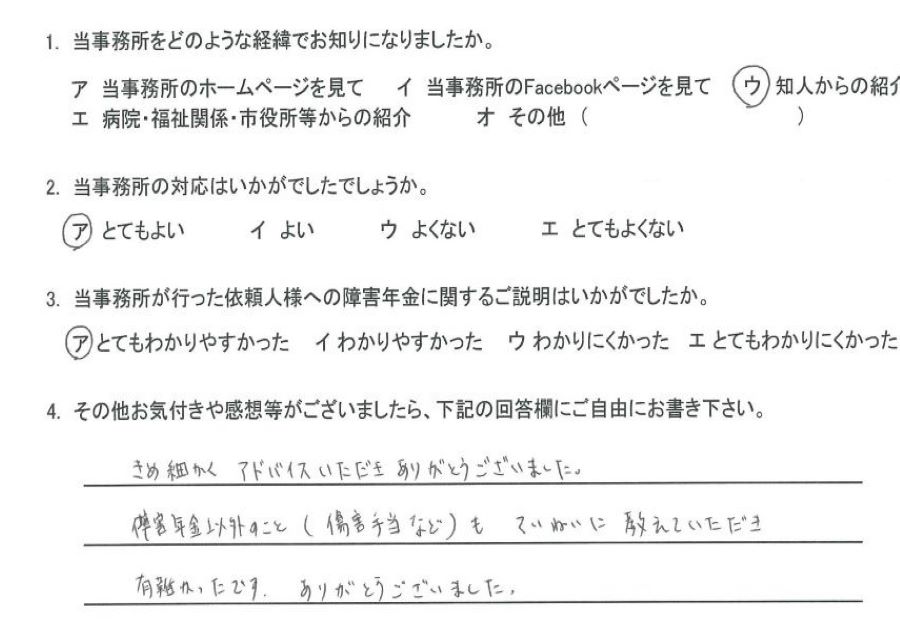 1. 当事務所をどのような経緯でお知りになりましたか。
ア 当事務所のホームページを見て イ 当事務所のFacebookページを見て ウ 知人からの紹介
エ 病院・福祉関係・市役所等からの紹介 オ その他（ ）
2. 当事務所の対応はいかがでしたでしょうか。
ア とてもよい イ よい ウ よくない エ とてもよくない
3. 当事務所が行った依頼人様への障害年金に関するご説明はいかがでしたか。
ア とてもわかりやすかった イ わかりやすかった ウ わかりにくかった エ とてもわかりにくかった
4. その他お気付きや感想等がございましたら、下記の回答欄にご自由にお書き下さい。
きめ細かく アドバイスいただき ありがとうございました。
障害年金以外のこと（傷害手当など）も ていねいに 教えていただき
有難かったです。ありがとうございました。